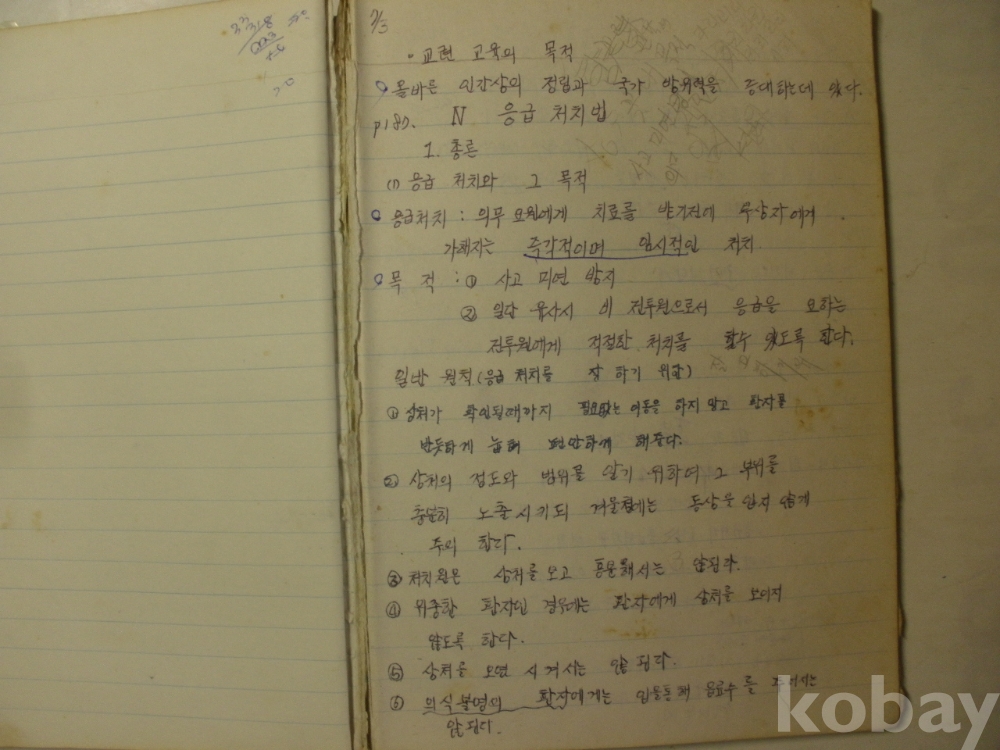 2/3
· 교련 교육의 목적
올바른 인간상의 정립과 국가 방위력을 증대하는데 있다.
p180. N 응급 처치법
1. 총론
(1) 응급 처치와 그 목적
응급처치 : 의무 요원에게 치료를 받기전에 부상자에게
가해지는 즉각적이며 임시적인 처치
목적 : ① 사고 미연 방지
② 일단 유사시 비 전투원으로서 응급을 요하는
전투원에게 적절한 처치를 할수 있도록 한다.
일반 원칙 (응급 처치를 잘 하기 위한)
① 상처가 확인될때까지 필요없는 이동을 하지 말고 환자를
반듯하게 눕혀 편안하게 해준다.
② 상처의 정도와 범위를 알기 위하여 그 부위를
충분히 노출시키되 겨울철에는 동상을 입지 않게
주의 한다.
③ 처치원은 상처를 보고 흥분해서는 안된다.
④ 위중한 환자인 경우에는 환자에게 상처를 보이지
않도록 한다.
⑤ 상처를 오염 시켜서는 안 된다.
⑥ 의식불명의 환자에게는 음료수를
안된다.
kobay